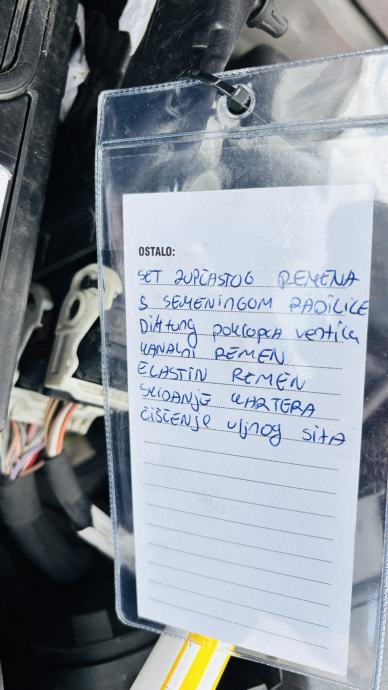 OSTALO:
SET ZUPČASTOG REMENA
S SEMENINGOM RADILICE
Dihtung poklopca ventila
KANALNI REMEN
ELASTIN REMEN
SKIDANJE KARTERA
ČIŠĆENJE uljnog sita